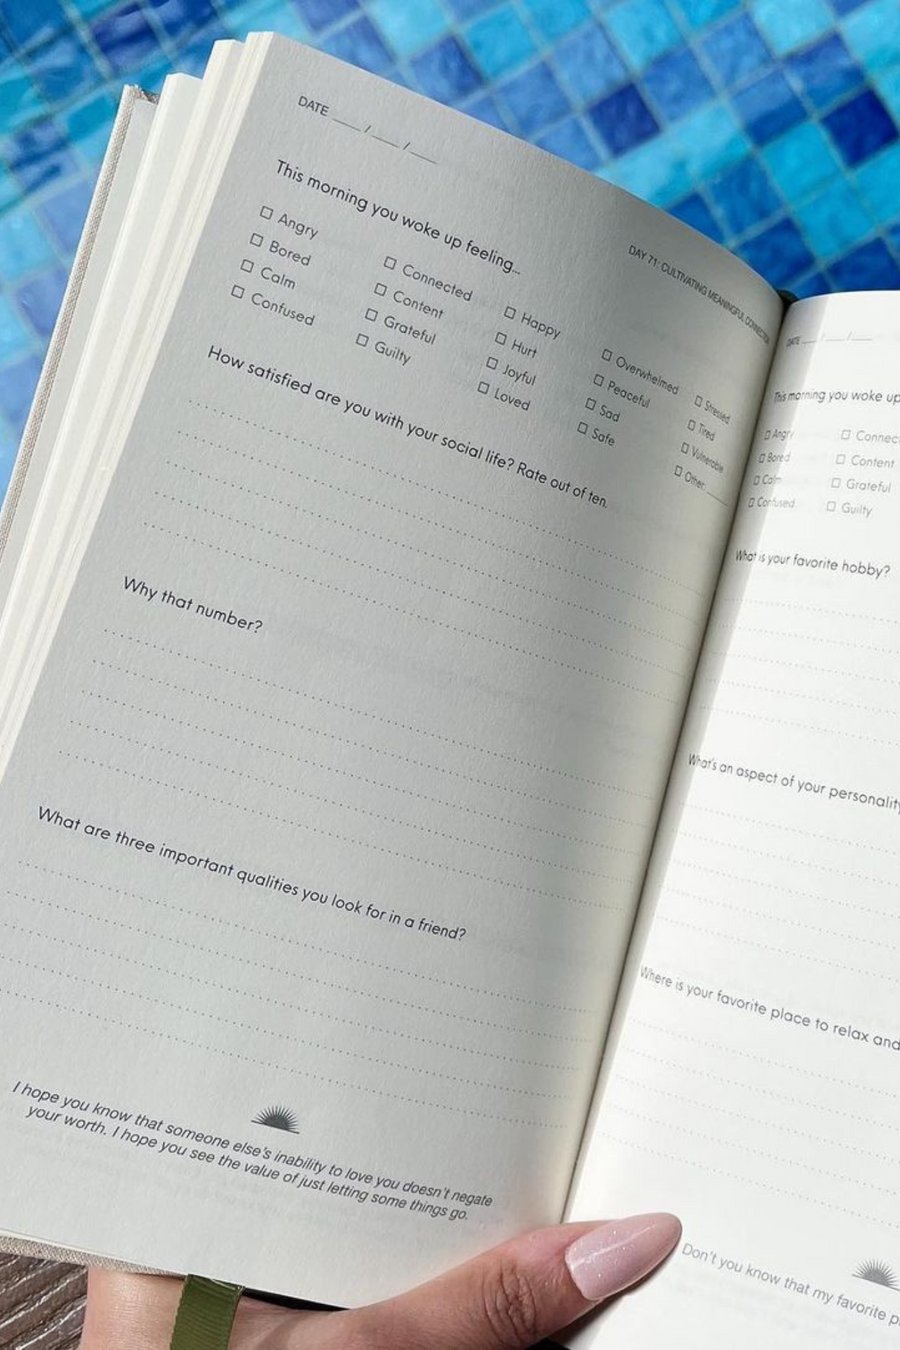 DATE ____ / ____ / ____
DAY 71: CULTIVATING MEANINGFUL
This morning you woke up feeling...
☐ Angry
☐ Bored
☐ Calm
☐ Confused
☐ Connected
☐ Content
☐ Grateful
☐ Guilty
☐ Happy
☐ Hurt
☐ Joyful
☐ Loved
☐ Overwhelmed
☐ Peaceful
☐ Sad
☐ Safe
☐ Stressed
☐ Tired
☐ Vulnerable
☐ Other: ____
How satisfied are you with your social life? Rate out of ten.
Why that number?
What are three important qualities you look for in a friend?
I hope you know that someone else's inability to love you doesn't negate
your worth. I hope you see the value of just letting some things go.
DATE ____ / ____ / ____
This morning you woke up
☐ Angry
☐ Bored
☐ Calm
☐ Confused
☐ Connec
☐ Content
☐ Grateful
☐ Guilty
What is your favorite hobby?
What's an aspect of your personality
Where is your favorite place to relax and
Don't you know that my favorite p